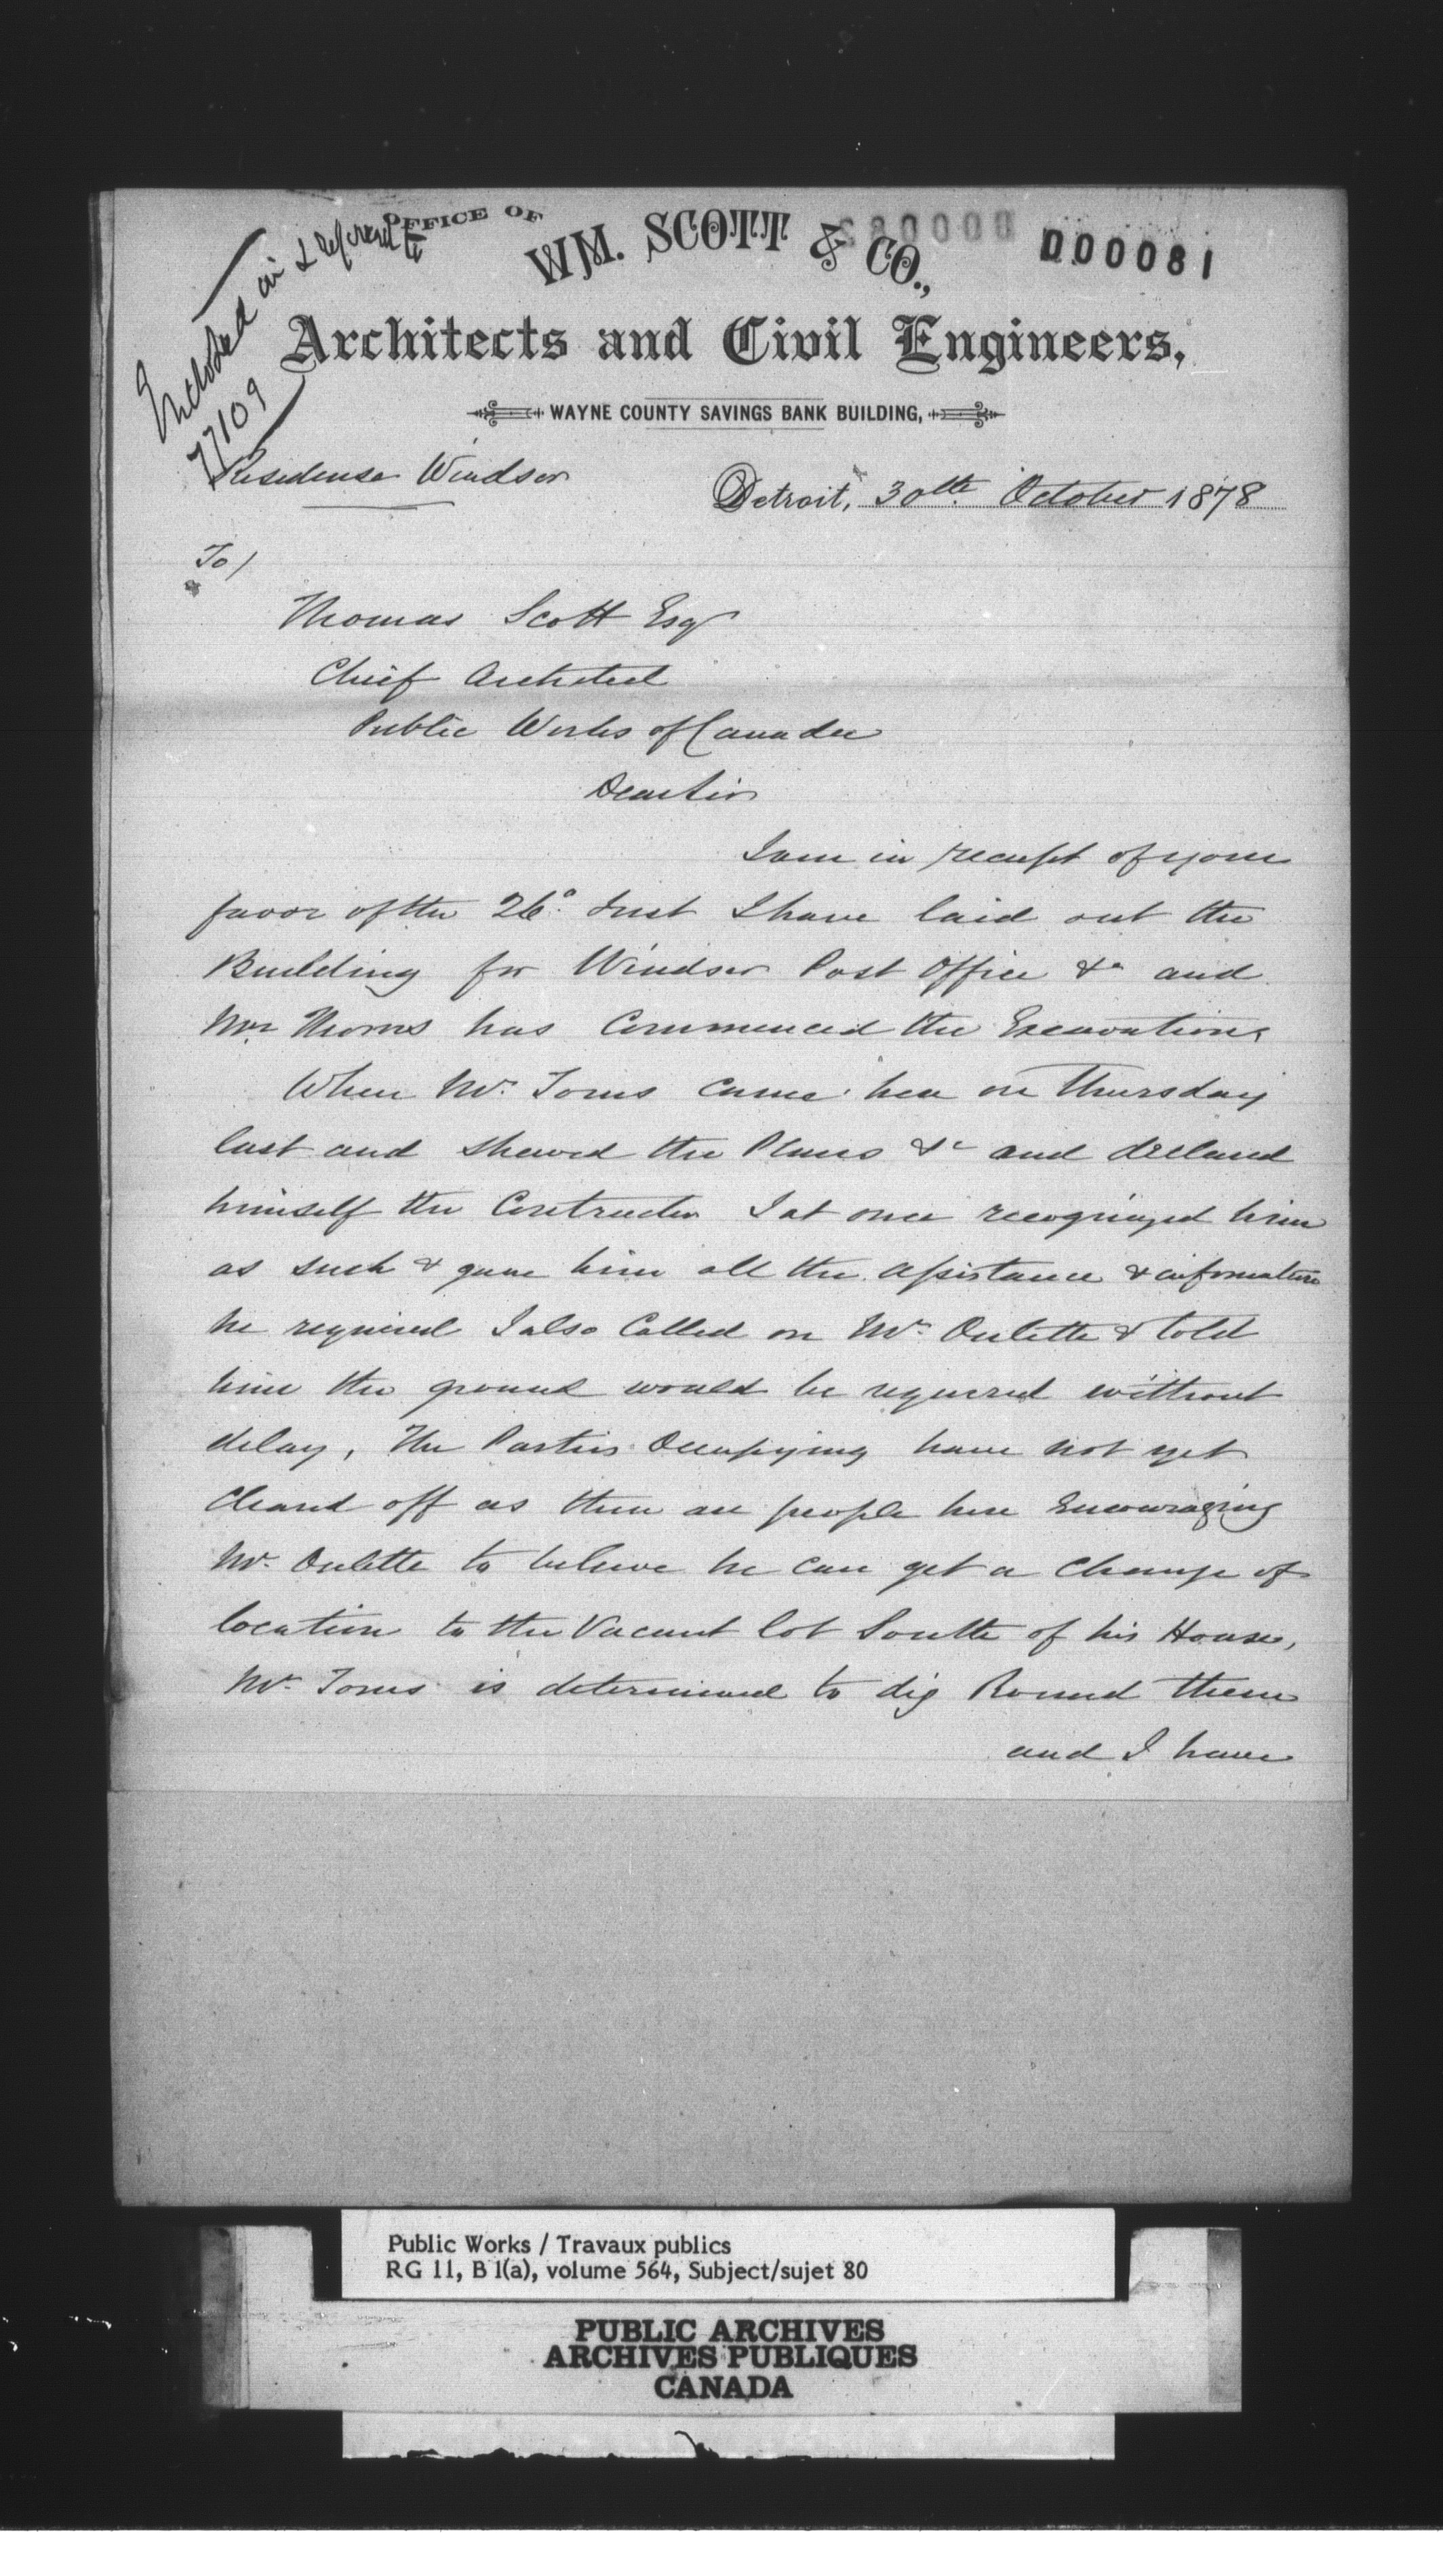 Enclosed in & referred to
77109
OFFICE OF
WM. SCOTT & CO.,
000081
Architects and Civil Engineers,
WAYNE COUNTY SAVINGS BANK BUILDING,
Residense Windsor
Detroit, 30th October 1878
To/
Thomas Scott Esqr
Chief Architect
Public Works of Canada
Dear Sir
I am in receipt of your
favor of the 26° Inst I have laid out the
Building for Windsor Post Office &c and
Mr. Thoms has Commenced the Excavations
When Mr. Toms came here on Thursday
last and shewed the Plans &c and declared
himself the Contractor I at once recognized him
as such & gave him all the assistance & information
he required I also Called on Mr. Oulette & told
him the ground would be required without
delay, The Parties Occupying have not yet
Cleared off as there are people here Encouraging
Mr. Oulette to beleive he can get a change of
location to the Vacant lot South of his House,
Mr. Toms is determined to dig Round them
and I have
Public Works / Travaux publics
RG 11, B 1(a), volume 564, Subject/sujet 80
PUBLIC ARCHIVES
ARCHIVES PUBLIQUES
CANADA